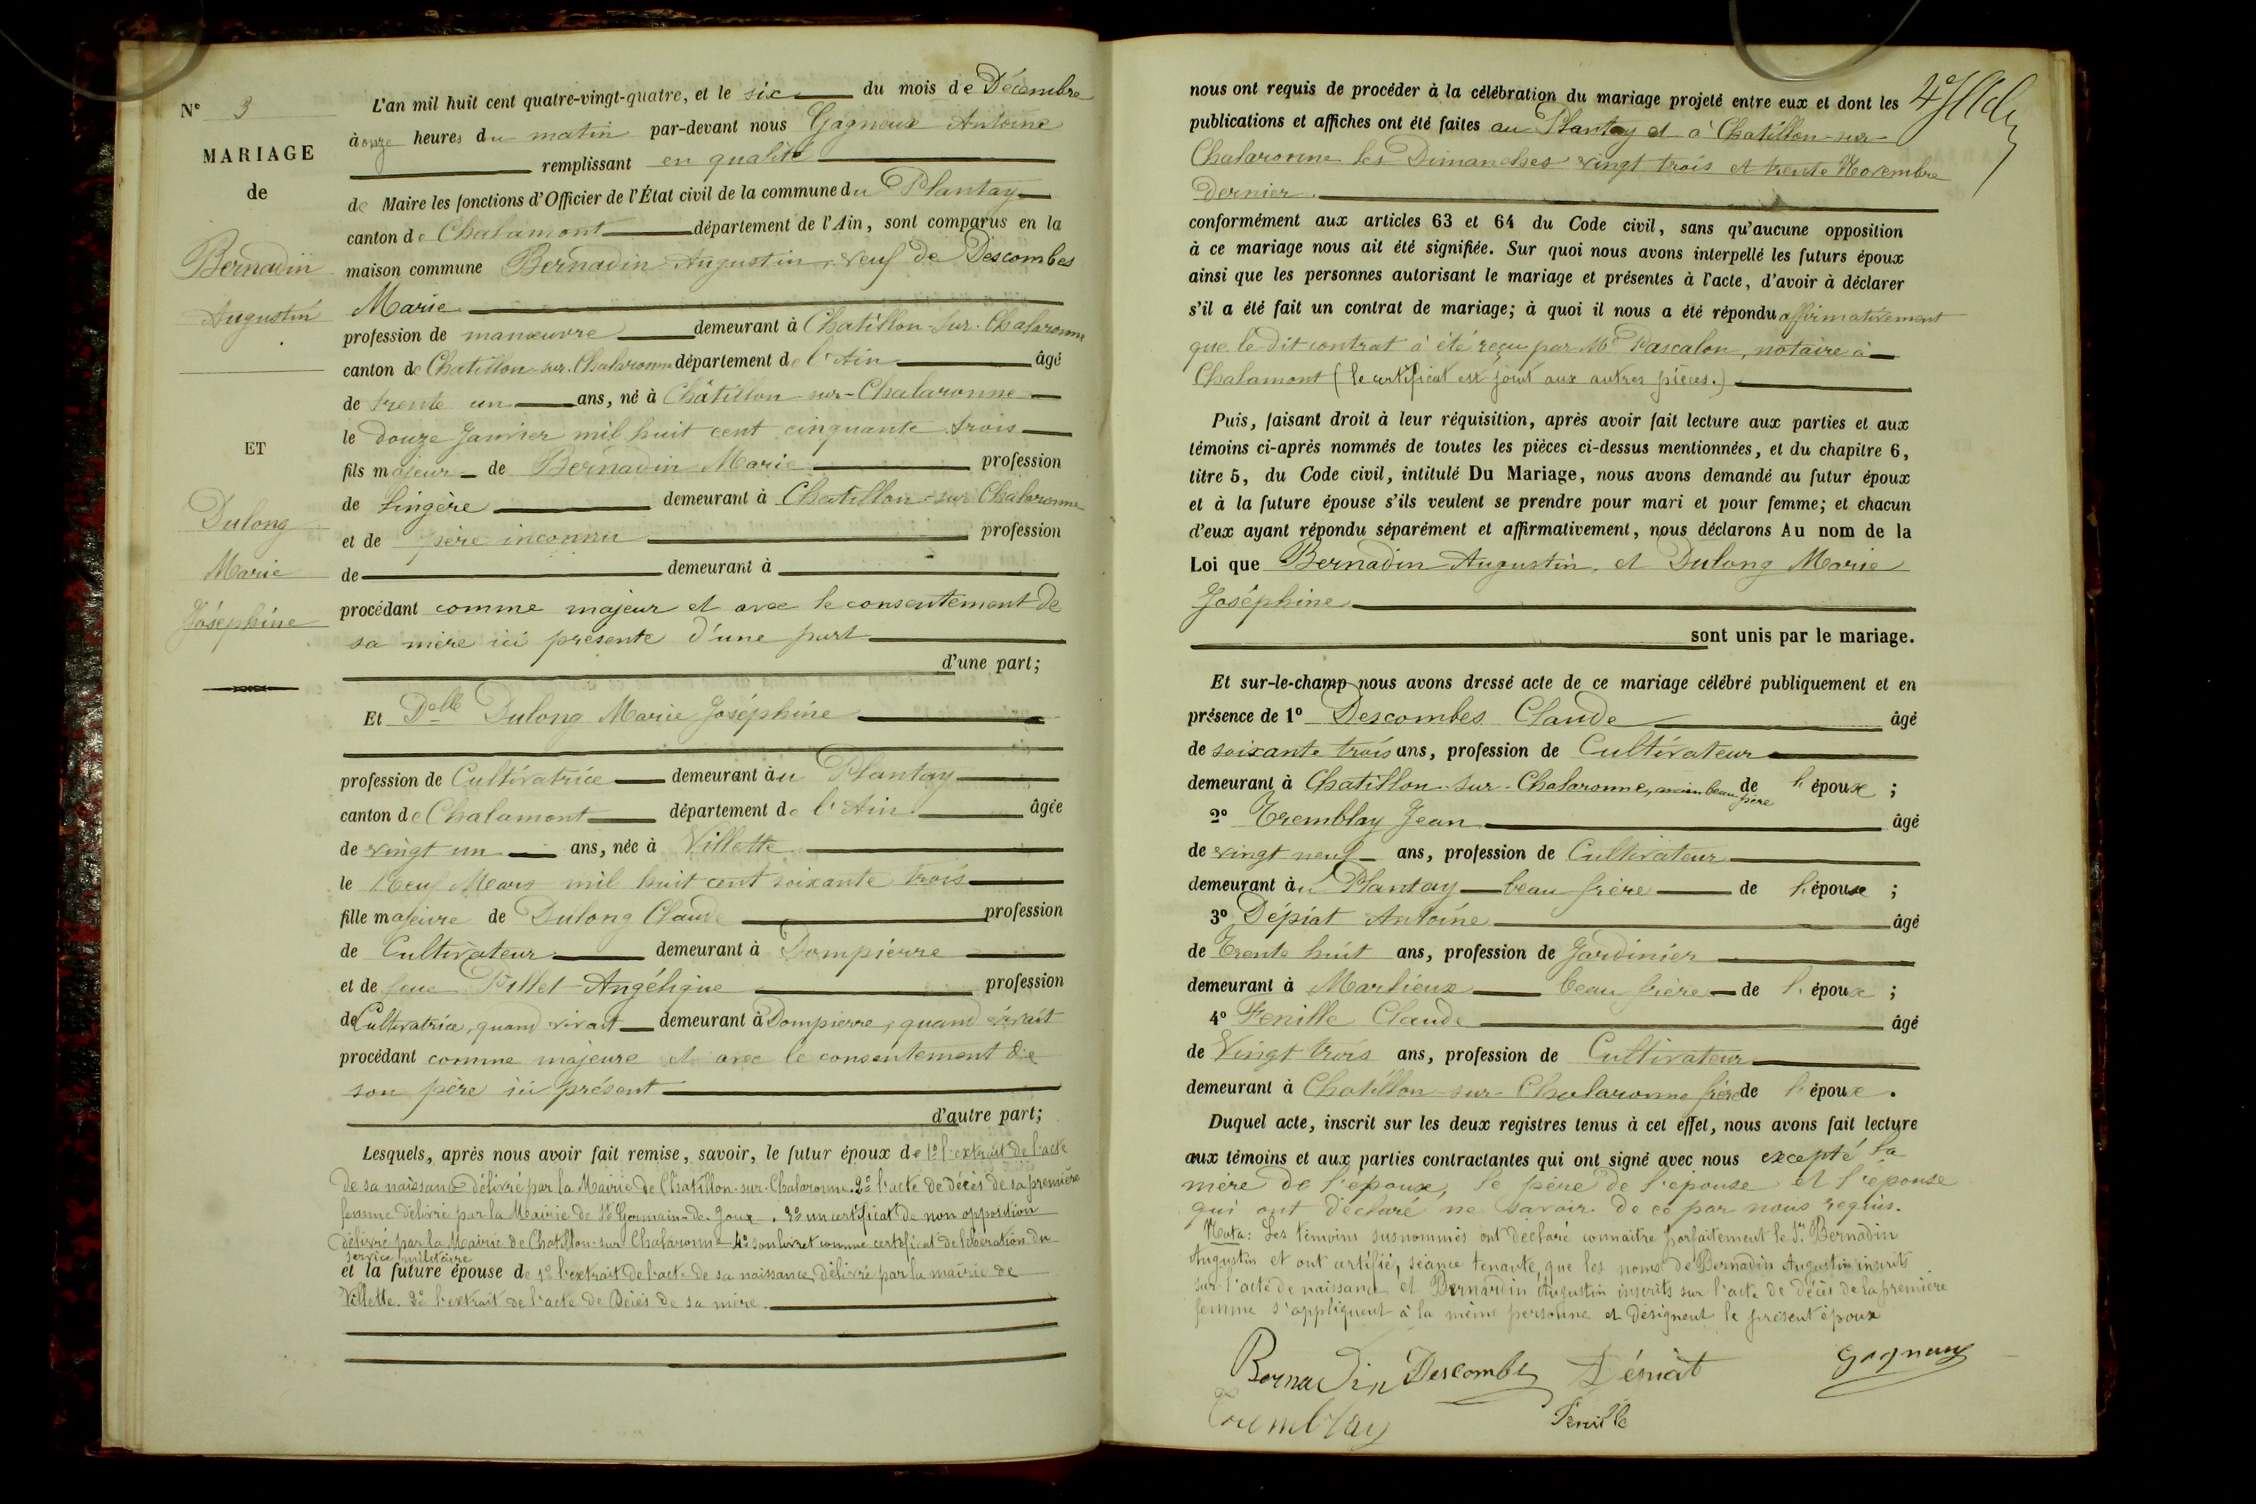 N° 3
MARIAGE
de
Bernadin
Augustin
ET
Dulong
Marie
Joséphine
L'an mil huit cent quatre-vingt-quatre, et le six du mois de Décembre
à onze heures du matin par-devant nous Gagneux Antoine
remplissant en qualité
de Maire les fonctions d'Officier de l'État civil de la commune du Plantay
canton de Chalamont département de l'Ain, sont comparus en la
maison commune Bernadin Augustin, veuf de Descombes
Marie
profession de manœuvre demeurant à Chatillon-sur-Chalaronne
canton de Chatillon-sur-Chalaronne département de l'Ain âgé
de trente un ans, né à Châtillon-sur-Chalaronne
le douze Janvier mil huit cent cinquante trois
fils majeur de Bernadin Marie profession
de Lingère demeurant à Chatillon-sur-Chalaronne
et de père inconnu profession
de demeurant à
procédant comme majeur et avec le consentement de
sa mère ici présente d'une part
d'une part;
Et Delle Dulong Marie Joséphine
profession de Cultivatrice demeurant au Plantay
canton de Chalamont département de l'Ain âgée
de vingt un ans, née à Villette
le Neuf Mars mil huit cent soixante trois
fille majeure de Dulong Claude profession
de Cultivateur demeurant à Dompierre
et de feue Pillet Angélique profession
de Cultivatrice, quand vivait demeurant à Dompierre, quand vivait
procédant comme majeure et avec le consentement de
son père ici présent
d'autre part;
Lesquels, après nous avoir fait remise, savoir, le futur époux de 1° l'extrait de l'acte
de sa naissance délivré par la Mairie de Chatillon-sur-Chalaronne. 2° l'acte de décès de sa première
femme délivré par la Mairie de St Germain-de-Joux. 3° un certificat de non opposition
délivré par la Mairie de Chatillon-sur-Chalaronne 4° son livret comme certificat de libération du
service militaire
et la future épouse de 1° l'extrait de l'acte de sa naissance, délivré par la mairie de
Villette. 2° l'extrait de l'acte de Décès de sa mère.
nous ont requis de procéder à la célébration du mariage projeté entre eux et dont les
publications et affiches ont été faites au Plantay et à Chatillon-sur-
Chalaronne les Dimanches vingt trois et trente Novembre
dernier.
conformément aux articles 63 et 64 du Code civil, sans qu'aucune opposition
à ce mariage nous ait été signifiée. Sur quoi nous avons interpellé les futurs époux
ainsi que les personnes autorisant le mariage et présentes à l'acte, d'avoir à déclarer
s'il a été fait un contrat de mariage; à quoi il nous a été répondu affirmativement
que le dit contrat a été reçu par Me Pascalon, notaire à
Chalamont (le certificat est joint aux autres pièces.)
Puis, faisant droit à leur réquisition, après avoir fait lecture aux parties et aux
témoins ci-après nommés de toutes les pièces ci-dessus mentionnées, et du chapitre 6,
titre 5, du Code civil, intitulé Du Mariage, nous avons demandé au futur époux
et à la future épouse s'ils veulent se prendre pour mari et pour femme; et chacun
d'eux ayant répondu séparément et affirmativement, nous déclarons Au nom de la
Loi que Bernadin Augustin et Dulong Marie
Joséphine
sont unis par le mariage.
Et sur-le-champ nous avons dressé acte de ce mariage célébré publiquement et en
présence de 1° Descombes Claude âgé
de soixante trois ans, profession de Cultivateur
demeurant à Chatillon-sur-Chalaronne, ancien beau père de l'époux ;
2° Tremblay Jean âgé
de vingt neuf ans, profession de Cultivateur
demeurant au Plantay beau frère de l'épouse ;
3° Dépiat Antoine âgé
de Trente huit ans, profession de Jardinier
demeurant à Marlieux beau frère de l'époux ;
4° Fenille Claude âgé
de Vingt trois ans, profession de Cultivateur
demeurant à Chatillon-sur-Chalaronne frère de l'époux.
Duquel acte, inscrit sur les deux registres tenus à cet effet, nous avons fait lecture
aux témoins et aux parties contractantes qui ont signé avec nous excepté la
mère de l'époux, le père de l'épouse et l'épouse
qui ont déclaré ne savoir de ce par nous requis.
Nota: Les témoins susnommés ont déclaré connaître parfaitement le Sr Bernadin
Augustin et ont certifié, séance tenante, que les noms de Bernadin Augustin inscrits
sur l'acte de naissance et Bernardin Augustin inscrits sur l'acte de décès de la première
femme s'appliquent à la même personne et désignent le présent époux
Bernadin Descombes Dépiat Gagneux
Tremblay Fenille